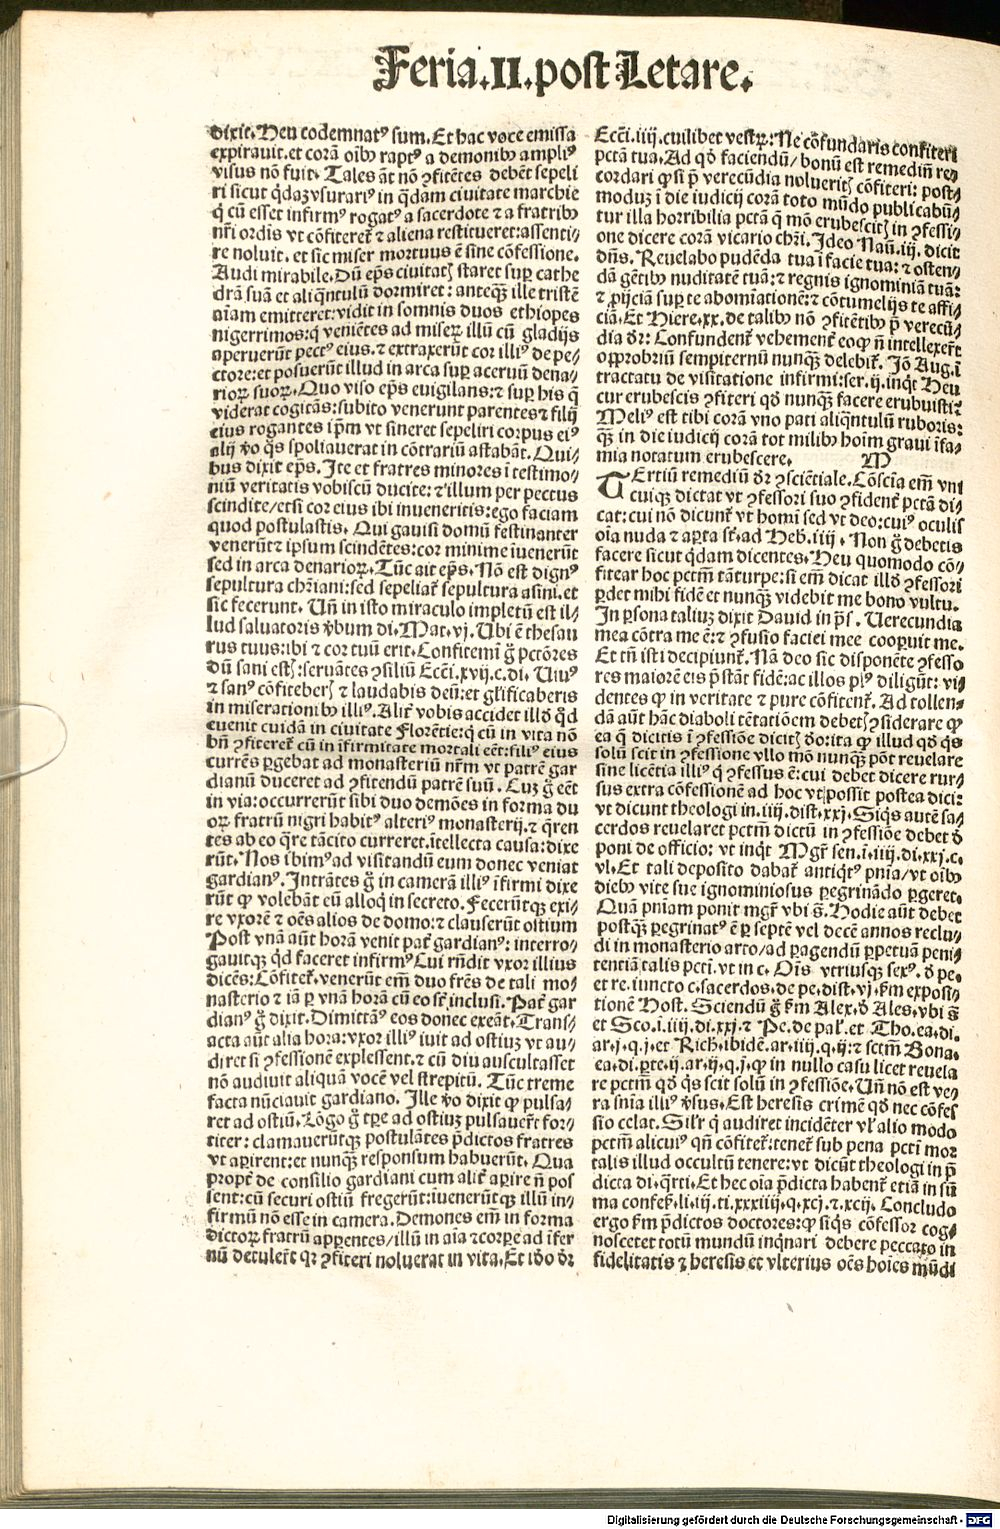 Feria.II.post Letare.
dixit. Heu codemnatꝰ sum. Et hac voce emissa
expirauit. et corā oībꝫ raptꝰ a demonibꝫ ampliꝰ
visus nō fuit. Tales āt nō ꝯfitētes debēt sepeli
ri sicut q̇dāꝫ vsurariꝰ in q̇dam ciuitate marchie
q̇ cū esset infirmꝰ rogatꝰ a sacerdote ⁊ a fratribꝫ
nr̄i ordīs vt cōfiteret̄ ⁊ aliena restitueret: assenti⸗
re noluit. et sic miser mortuus ē sine cōfessione.
Audi mirabile. Dū ep̄s ciuitatꝭ staret suꝑ cathe
drā suā et aliq̄ntulū dormiret: anteqꝫ ille tristē
aīam emitteret: vidit in somnis duos ethiopes
nigerrimos: q̇ veniētes ad miseꝝ illū cū gladijs
aperuerūt pectꝰ eius. ⁊ extraxerūt cor illiꝰ de pe⸗
ctore: et posuerūt illud in arca suꝑ aceruū dena⸗
rioꝝ suoꝝ. Quo viso ep̄s euigilans: ⁊ suꝑ his q̄
viderat cogitās: subito venerunt parentes ⁊ filij
eius rogantes ip̄m vt sineret sepeliri corpus eiꝰ
alij v̄o q̄s spoliauerat in cōtrariū astabāt. Qui⸗
bus dixit ep̄s. Ite et fratres minores ī testimo⸗
niū veritatis vobiscū ducite: ⁊ illum per pectus
scindite/ etsi cor eius ibi inueneritis: ego faciam
quod postulastis. Qui gauisi domū festinanter
venerūt ⁊ ipsum scindētes: cor minime īuenerūt
sed in arca denarioꝝ. Tūc ait ep̄s. Nō est dignꝰ
sepultura chr̄iani: sed sepeliat̄ sepultura asini. et
sic fecerunt. Uñ in isto miraculo impletū est il⸗
lud saluatoris v̄bum di. Mat. vj. Ubi ē thesau
rus tuus: ibi ⁊ cor tuū erit. Confitemī g̊ pctōres
dū sani estꝭ: seruātes ꝯsiliū Ecci̅. xvij. c. di. Uiuꝰ
⁊ sanꝰ cōfiteberꝭ ⁊ laudabis deū: et gl̄ificaberis
in miserationibꝫ illiꝰ. Alit̄ vobis accidet illd̄ qd̄
euenit cuidā in ciuitate Florētie: q̇ cū in vita nō
bn̄ ꝯfiteret̄ cū in īfirmitate mortali eēt: filiꝰ eius
currēs ꝑgebat ad monasteriū nr̄m vt patrē gar
dianū duceret ad ꝯfitendū patrē suū. Cuꝫ g̊ eēt
in via: occurrerūt sibi duo demōes in forma du
oꝝ fratrū nigri habitꝰ alteriꝰ monasterij. ⁊ q̄ren
tes ab eo q̄re tācito curreret. ītellecta causa: dixe
rūt. Nos ibimꝰ ad visitandū eum donec veniat
gardianꝰ. Intrātes g̊ in camerā illiꝰ īfirmi dixe
rūt ꝙ volebāt eū alloq̇ in secreto. Feceruntqꝫ exi⸗
re vxorē ⁊ oēs alios de domo: ⁊ clauserūt ostium
Post vnā aūt horā venit pat̄ gardianꝰ: interro⸗
gauitqꝫ qd̄ faceret infirmꝰ Cui rn̄dit vxor illius
dicēs: Cōfitet̄. venerūt em̄ duo fr̄es de tali mo⸗
nasterio ⁊ iā ꝑ vnā horā cū eo st̄ inclusi. Pat̄ gar
dianꝰ g̊ dixit. Dimittāꝰ eos donec exeāt. Trans⸗
acta aūt alia hora: vxor illiꝰ iuit ad ostiuꝫ vt au⸗
diret si ꝯfessionē explessent. ⁊ cū diu auscultasset
nō audiuit aliquā vocē vel strepitū. Tūc treme
facta nūciauit gardiano. Ille v̄o dixit ꝙ pulsa⸗
ret ad ostiū. Lōgo g̊ tꝑe ad ostiuꝫ pulsauer̄t for⸗
titer: clamauerūtqꝫ postulātes p̄dictos fratres
vt aꝑirent: et nunqꝫ responsum habuerūt. Qua
propt̄ de consilio gardiani cum alit̄ aꝑire n̄ pos
sent: cū securi ostiū fregerūt: iuenerūtqꝫ illū in⸗
firmū nō esse in camera. Demones em̄ in forma
dictoꝝ fratrū apparentes/ illū in aīa ⁊ corꝑe ad īfer
nū detuler̄t qꝛ ꝯfiteri noluerat in vita. Et iō dr̄
Ecci̅. iiij. cuilibet vestꝝ: Ne cōfundaris confiteri
pctā tua. Ad qd̄ faciendū/ bonū est remediū re⸗
cordari ꝙ si p̄ verecūdia nolueritꝭ cōfiteri: post⸗
moduꝫ ī die iudicij corā toto mūdo publicabū⸗
tur illa horribilia pctā q̄ mō erubescitꝭ in ꝯfessi⸗
one dicere corā vicario chr̄i. Ideo Naū. iij. dicit
dn̄s. Reuelabo pudēda tua ī facie tua: ⁊ osten⸗
dā gētibꝫ nuditatē tuā: ⁊ regnis ignominiā tuā:
⁊ ꝓijciā suꝑ te abomīationē: ⁊ cōtumelijs te affi⸗
ciā. Et Hiere. xx. de talibꝫ nō ꝯfitētibꝫ p̄ verecū⸗
dia dr̄: Confundent̄ vehement̄ eo ꝙ n̄ intellexer̄t
opprobriū sempiternū nunqꝫ delebit̄. Iō Aug. ī
tractatu de visitatione infirmi: ser. ij. inq̇t Heu
cur erubescis ꝯfiteri qd̄ nunqꝫ facere erubuisti?
Meliꝰ est tibi corā vno pati aliq̄ntulū ruboris:
qꝫ in die iudicij corā tot milibꝫ hoīm graui īfa⸗
mia notatum erubescere. M
TErtiū remediū dr̄ ꝯsciētiale. Cōscīa em̄ vni
cuiqꝫ dictat vt ꝯfessori suo ꝯfident̄ pctā di⸗
cat: cui nō dicunt̄ vt homi sed vt deo: cuiꝰ oculis
oīa nuda ⁊ aꝑta st̄. ad Heb. iiij. Non g̊ debetis
facere sicut q̇dam dicentes. Heu quomodo cō⸗
fitear hoc pctm̄ tā turpe: si em̄ dicat illd̄ ꝯfessori
ꝑdet mihi fidē et nunqꝫ videbit me bono vultu.
In ꝑsona taliuꝫ dixit Dauid in p̄s. Uerecundia
mea cōtra me ē: ⁊ ꝯfusio faciei mee cooꝑuit me.
Et tn̄ isti decipiunt̄. Nā deo sic disponēte ꝯfesso
res maiorē eis p̄stāt fidē: ac illos plꝰ diligūt: vi⸗
dentes ꝙ in veritate ⁊ pure cōfitent̄. Ad tollen⸗
dā aūt hāc diaboli tētatiōem debetꝭ ꝯsiderare ꝙ
ea q̄ dicitis ī ꝯfessiōe dicitꝭ d̄o: ita ꝙ illud qd̄ q̇s
solū scit in ꝯfessione vllo mō nunqꝫ pōt reuelare
sine licētia illiꝰ q̇ ꝯfessus ē: cui debet dicere rur⸗
sus extra cōfessionē ad hoc vt possit postea dici:
vt dicunt theologi in. iiij. dist. xxj. Siq̇s autē sa⸗
cerdos reuelaret pctm̄ dictū in ꝯfessiōe debet d̄
poni de officio: vt inq̇t Mgr̄ sen. ī. iiij. di. xxj. c.
vl. Et tali deposito dabat̄ antiq̇tꝰ pn̄ia/ vt oībꝫ
diebꝫ vite sue ignominiosus ꝑegrinādo ꝑgeret.
Quā pn̄iam ponit mgr̄ vbi s̄. Hodie aūt debet
postqꝫ ꝑegrinatꝰ ē ꝑ septē vel decē annos reclu⸗
di in monasterio arto/ ad ꝑagendū ꝑpetuā peni⸗
tentiā talis pcti̅. vt in c. Oīs vtriusqꝫ sexꝰ. d̄ pe.
et re. iuncto c. sacerdos. de pe. dist. vj. ẜm exposi⸗
tionē Host. Sciendū g̊ ẜm Alex. d̄ Ales. vbi s̄
et Sco. ī. iiij. di. xxj. ⁊ Pe. de pal̄. et Tho. ea. di.
ar. j. q. j. et Rich. ibidē. ar. iiij. q. ij: ⁊ sctm̄ Bona.
ea. di. ꝑte. ij. ar. ij. q. j. ꝙ in nullo casu licet reuela
re pctm̄ qd̄ q̇s scit solū in ꝯfessiōe. Uñ nō est ve⸗
ra sn̄ia illiꝰ v̄sus. Est heresis crimē qd̄ nec cōfes
sio celat. Sil̄r q̇ audiret incidēter vl̄ alio modo
pctm̄ alicuiꝰ qn̄ cōfitet̄: tenet̄ sub pena pcti̅ mor
talis illud occultū tenere: vt dicūt theologi in p̄
dicta di. q̄rti. Et hec oīa p̄dicta habent̄ etiā in sū
ma confes̄. li. iij. ti. xxxiiij. q. xcj. ⁊ xcij. Concludo
ergo ẜm p̄dictos doctores: ꝙ siq̇s cōfessor cog⸗
noscetet totū mundū inq̇nari debere peccato in
fidelitatis ⁊ heresis et vlterius oēs hoīes mūdi
Digitalisierung gefördert durch die Deutsche Forschungsgemeinschaft - DFG